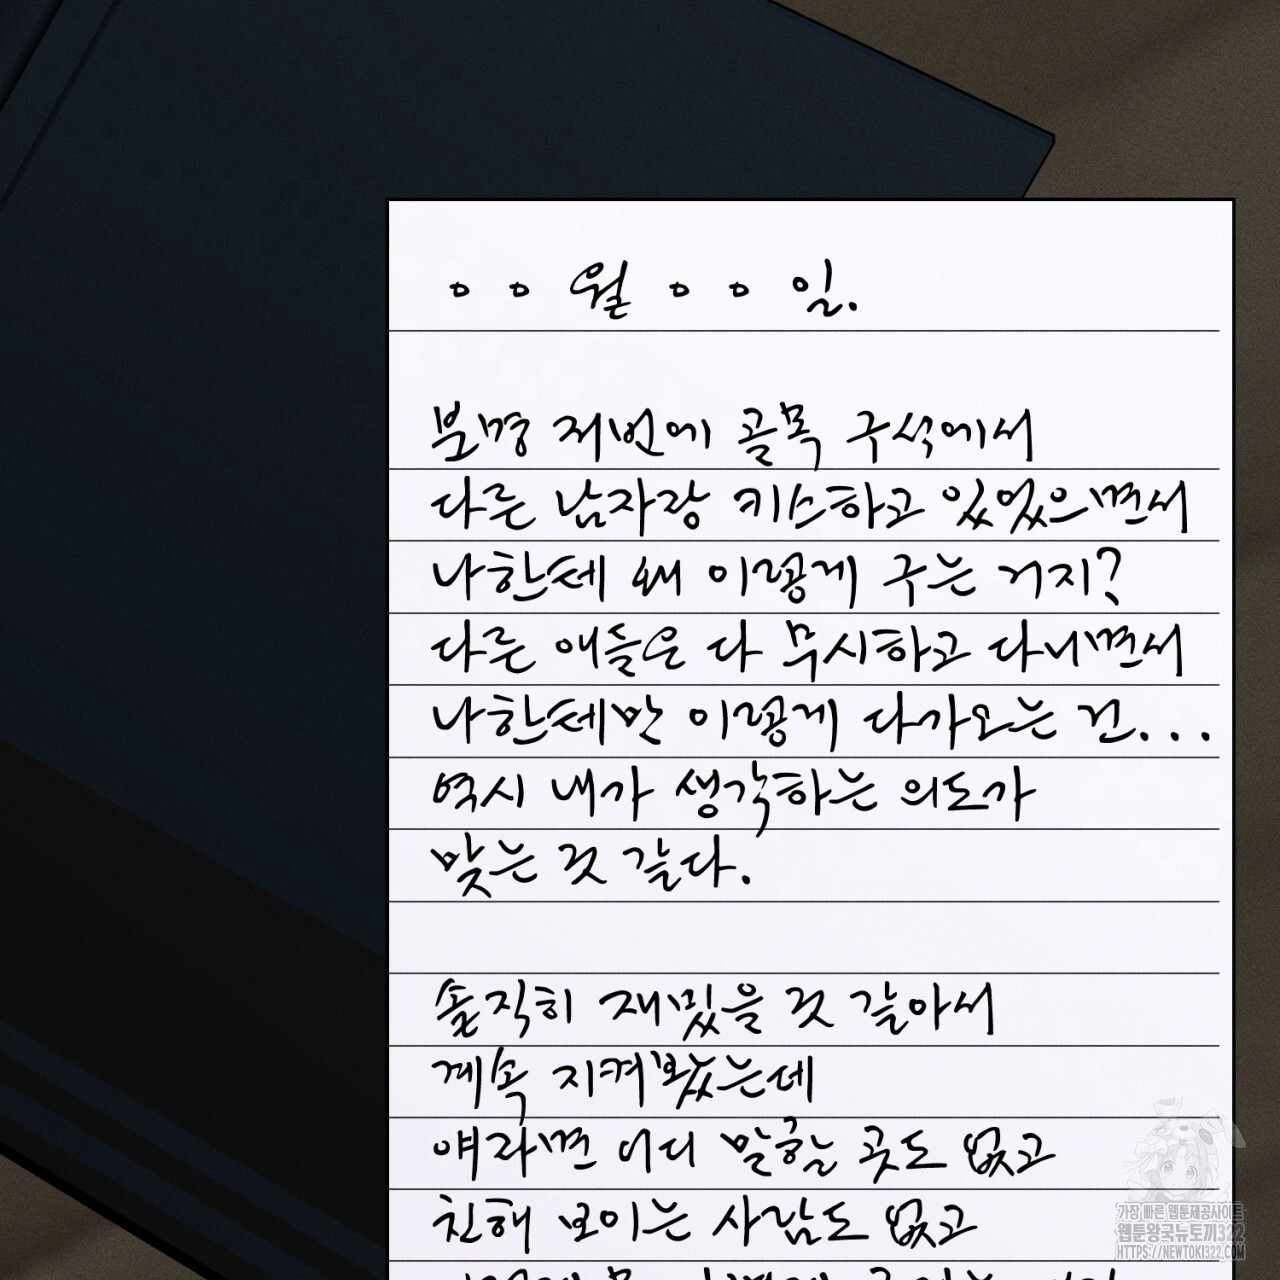 ㅇㅇ월 ㅇㅇ일.
분명 저번에 골목 구석에서
다른 남자랑 키스하고 있었으면서
나한테 왜 이렇게 구는 거지?
다른 애들은 다 무시하고 다니면서
나한테만 이렇게 다가오는 건...
역시 내가 생각하는 의도가
맞는 것 같다.
솔직히 재밌을 것 같아서
계속 지켜봤는데
얘라면 어디 말할 곳도 없고
친해 보이는 사람도 없고
가장 빠른 웹툰제공사이트
웹툰왕국뉴토끼322
HTTPS://NEWTOKI322.COM